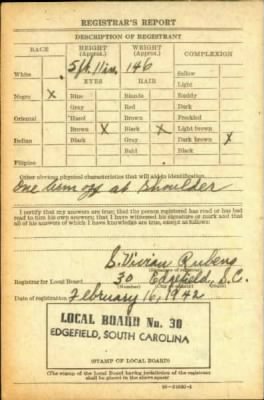 REGISTRAR'S REPORT
DESCRIPTION OF REGISTRANT
RACE HEIGHT (Approx.) WEIGHT (Approx.) COMPLEXION
5 ft. 11 in. 146
White Sallow
EYES HAIR Light
Negro X Blue Blonde Ruddy
Gray Red Dark
Oriental Hazel Brown Freckled
Brown X Black X Light brown
Indian Black Gray Dark brown X
Bald Black
Filipino
Other obvious physical characteristics that will aid in identification
One arm off at shoulder
I certify that my answers are true; that the person registered has read or has had
read to him his own answers; that I have witnessed his signature or mark and that
all of his answers of which I have knowledge are true, except as follows:
S. Vivian
Registrar for Local Board 30 Edgefield, S.C.
(Number) (City or county) (State)
Date of registration February 16, 1942
LOCAL BOARD No. 30
EDGEFIELD, SOUTH CAROLINA
(STAMP OF LOCAL BOARD)
(The stamp of the Local Board having jurisdiction of the registrant
shall be placed in the above space)